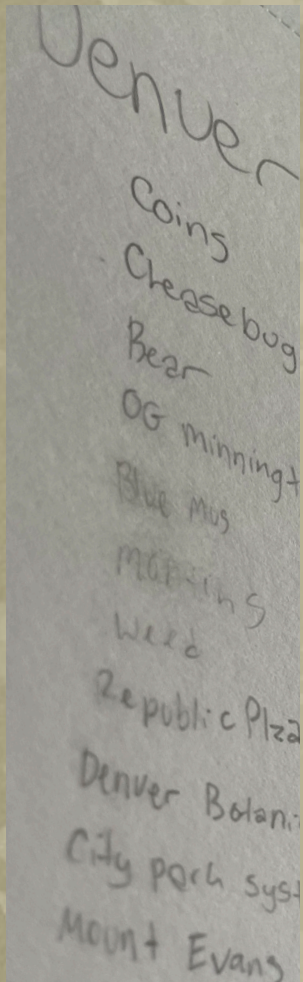 Denver
Coins
Cheasebug
Bear
OG minningt
Blue Mus
Weed
Republic Plza
Denver Botani
City parh syst
Mount Evans